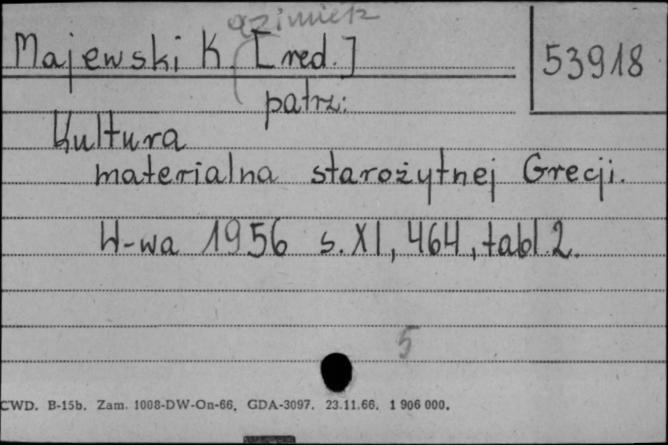 azimierz
Majewski K. [red.]
53918
patrz:
Kultura
materialna starożytnej Grecji.
W-wa 1956 s. XI, 464, tabl. 2.
5
CWD. B-15b. Zam. 1008-DW-On-66. GDA-3097. 23.11.66. 1 906 000.